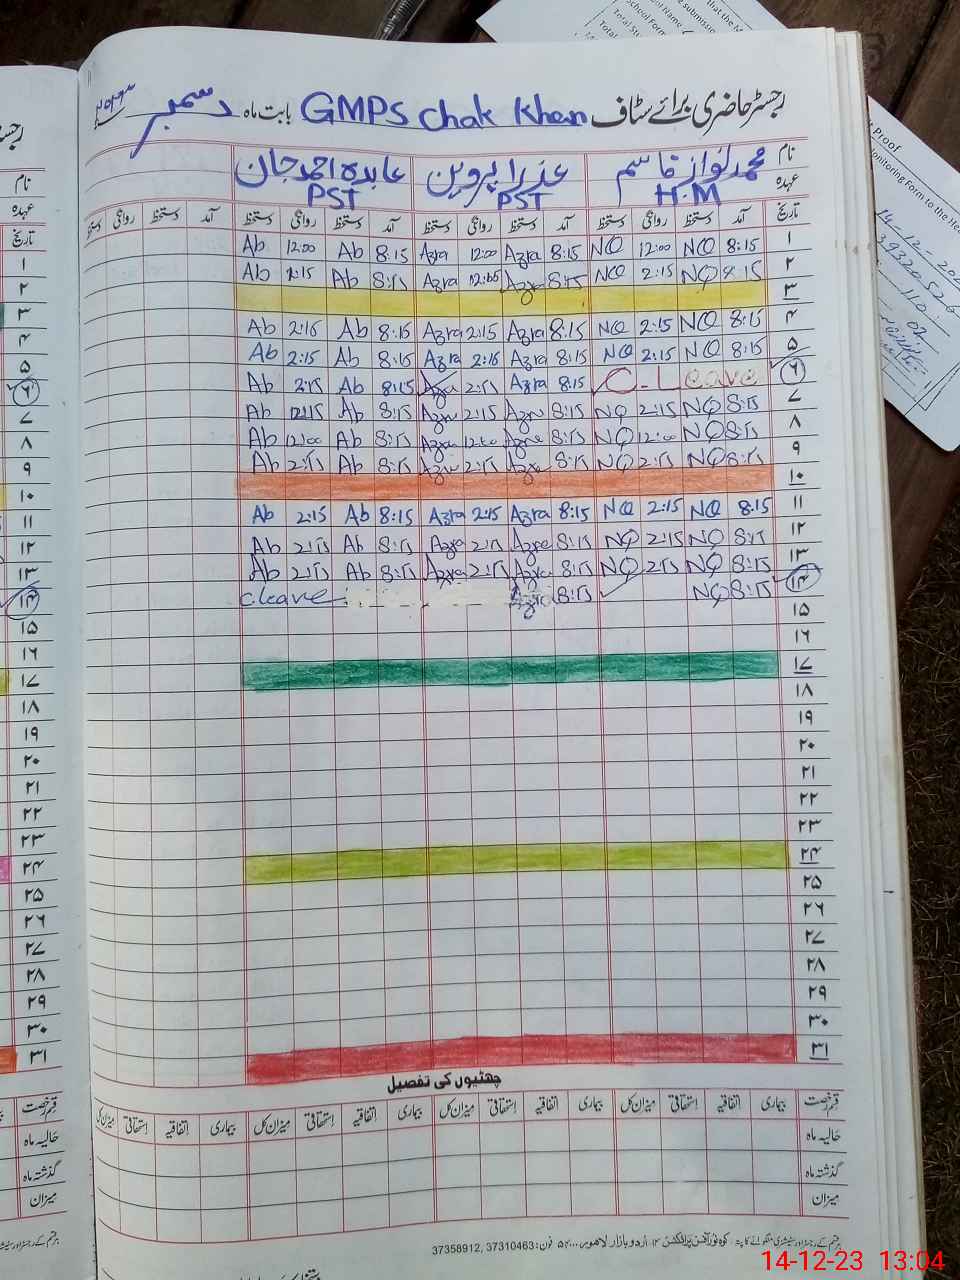 رجسٹر حاضری برائے سٹاف GMPS Chak Khan بابت ماہ دسمبر
نام محمد نواز قاسم عذرا پروین عابدہ احمد جان
عہدہ H.M PST PST
تاریخ آمد دستخط روانگی دستخط آمد دستخط روانگی دستخط آمد دستخط روانگی دستخط آمد دستخط روانگی دستخط
۱ 8:15 NQ 12:00 NQ 8:15 Azra 12:00 Azra 8:15 Ab 12:00 Ab
۲ 8:15 NQ 2:15 NQ 8:15 Azra Azra 8:15 Ab 2:15 Ab
۳
۴ 8:15 NQ 2:15 NQ 8:15 Azra 2:15 Azra 8:15 Ab 2:15 Ab
۵ 8:15 NQ 2:15 NQ 8:15 Azra 2:15 Azra 8:15 Ab 2:15 Ab
۶ C-Leave 8:15 Azra 2:15 Azra 8:15 Ab 2:15 Ab
۷ 8:15 NQ 2:15 NQ 8:15 Azra 2:15 Azra 8:15 Ab 2:15 Ab
۸ 8:15 NQ 12:00 NQ 8:15 Azra 12:00 Azra 8:15 Ab 12:00 Ab
۹ 8:15 NQ 2:15 NQ 8:15 Azra 2:15 Azra 8:15 Ab 2:15 Ab
۱۰
۱۱ 8:15 NQ 2:15 NQ 8:15 Azra 2:15 Azra 8:15 Ab 2:15 Ab
۱۲ 8:15 NQ 2:15 NQ 8:15 Azra 2:15 Azra 8:15 Ab 2:15 Ab
۱۳ 8:15 NQ 2:15 NQ 8:15 Azra 2:15 Azra 8:15 Ab 2:15 Ab
۱۴ 8:15 NQ 8:15 Azra cleave
۱۵
۱۶
۱۷
۱۸
۱۹
۲۰
۲۱
۲۲
۲۳
۲۴
۲۵
۲۶
۲۷
۲۸
۲۹
۳۰
۳۱
چھٹیوں کی تفصیل
قسم رخصت بیماری اتفاقیہ استحقاقی میزان کل بیماری اتفاقیہ استحقاقی میزان کل بیماری اتفاقیہ استحقاقی میزان کل بیماری اتفاقیہ استحقاقی میزان کل
حالیہ ماہ
گذشتہ ماہ
میزان
اردو بازار لاهور فون: 37310463, 37358912
14-12-23 13:04